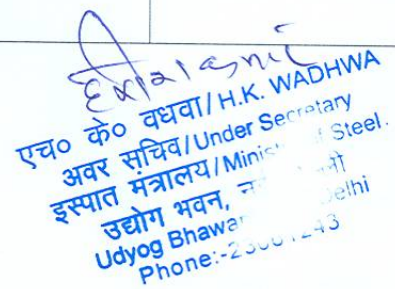 एच० के० वधवा/H.K. WADHWA
अवर सचिव/Under Secretary
इस्पात मंत्रालय/Minis Steel.
उद्योग भवन,
Udyog Bhawan Delhi
Phone:-23061243